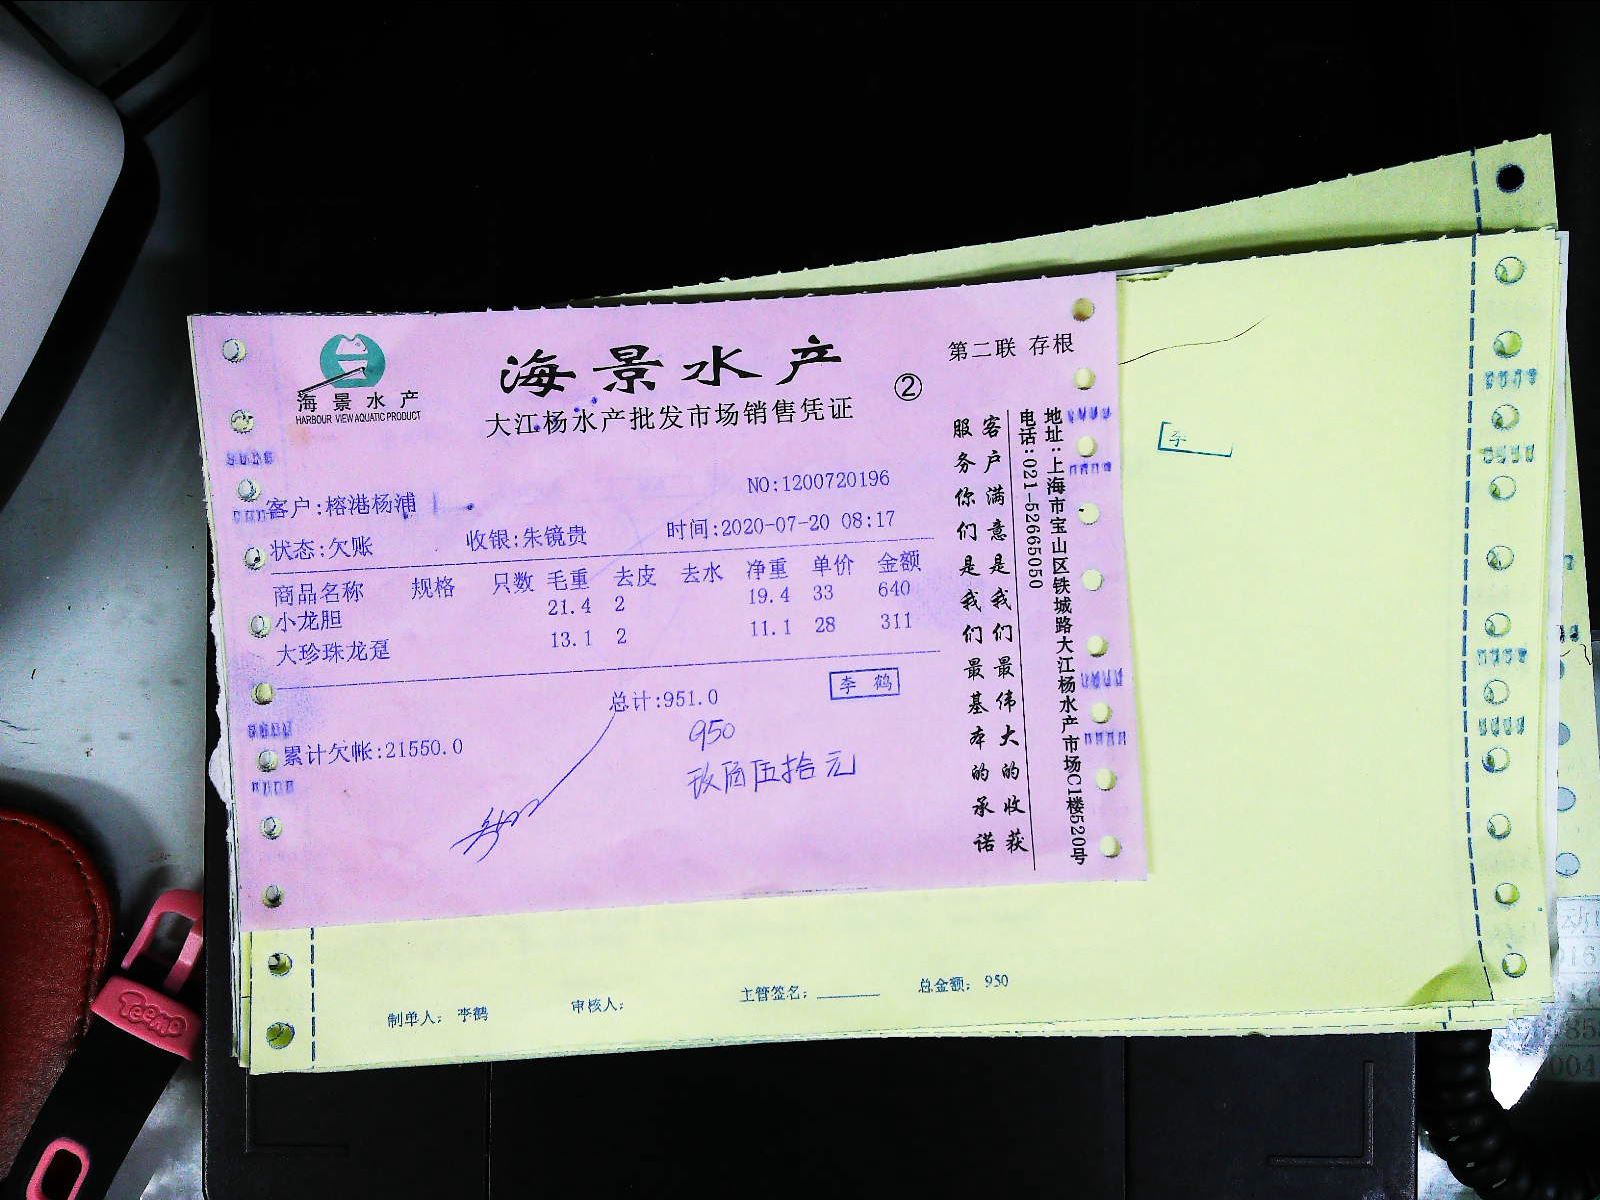 海景水产
HARBOUR VIEW AQUATIC PRODUCT
海景水产
大江杨水产批发市场销售凭证
②
第二联 存根
NO:1200720196
客户:榕港杨浦
状态:欠账 收银:朱镜贵 时间:2020-07-20 08:17
商品名称 规格 只数 毛重 去皮 去水 净重 单价 金额
小龙胆 21.4 2 19.4 33 640
大珍珠龙趸 13.1 2 11.1 28 311
总计:951.0
李鹤
累计欠帐:21550.0
950
玖佰伍拾元
客户满意是我们最伟大的收获
服务你们是我们最基本的承诺
地址:上海市宝山区铁城路大江杨水产市场C1楼520号
电话:021-52665050
李
制单人: 李鹤 审核人: 主管签名: 总金额: 950
Teemo